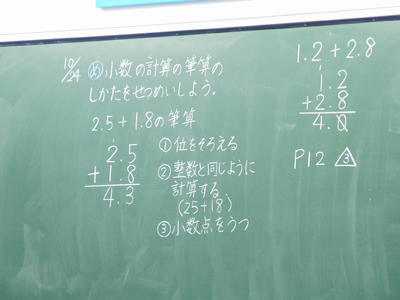 10/24 め 小数の計算の筆算の
しかたをせつめいしよう。
2.5+1.8の筆算
2.5
+1.8
4.3
①位をそろえる
②整数と同じように
計算する
(25+18)
③小数点をうつ
1.2+2.8
1.2
+2.8
4.0
P12 3